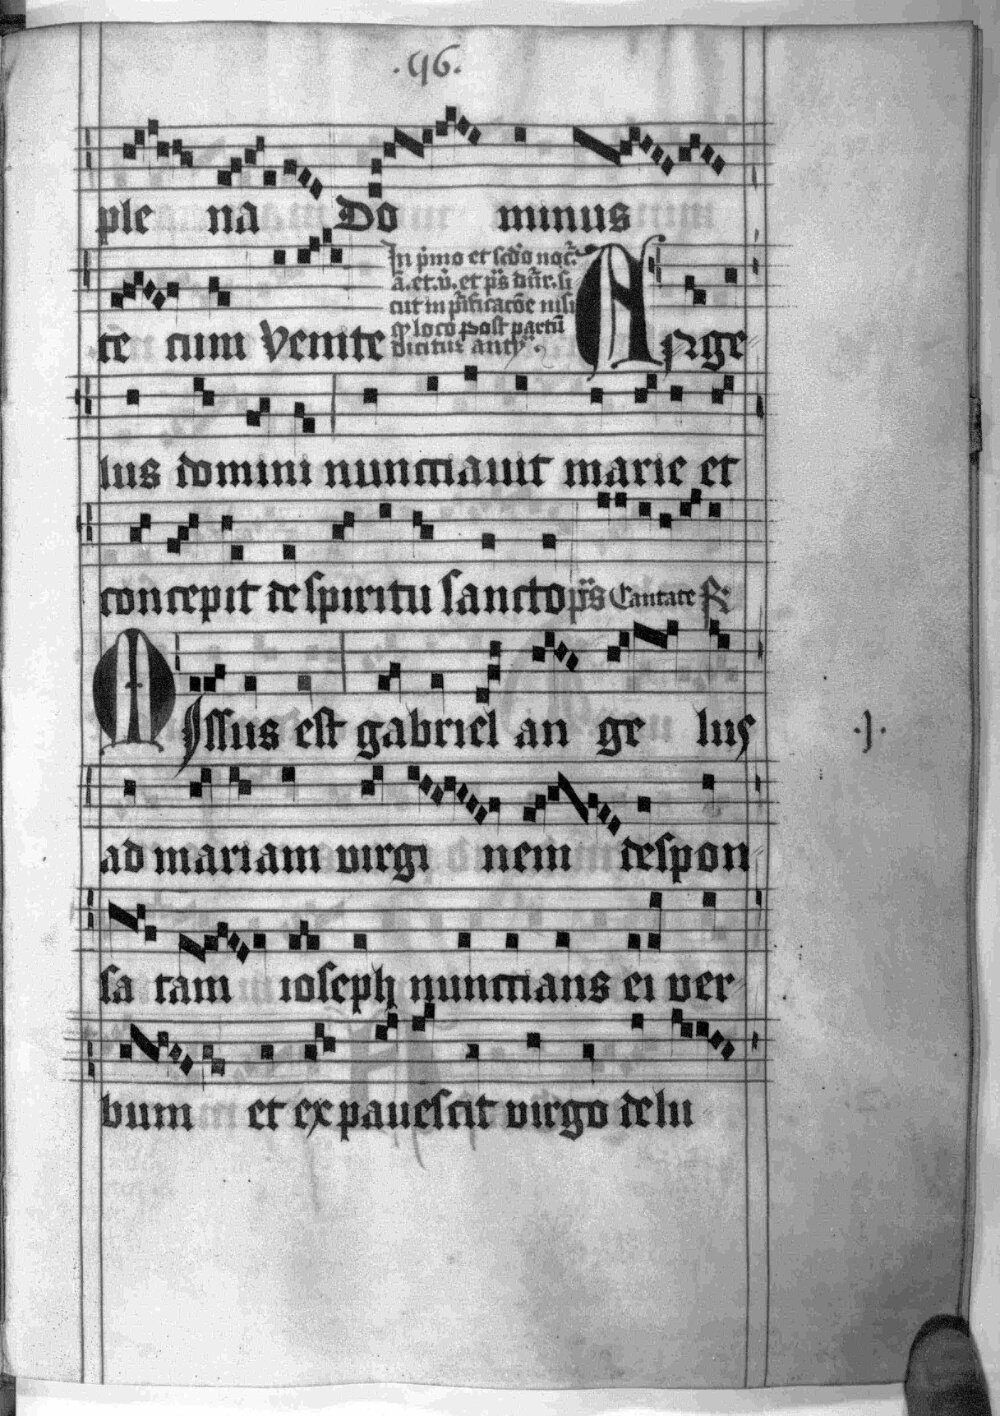 .96.
ple na Do minus
te cum Venite
In p̄mo et scd̄o noct̄.
a. et. v̄. et ps̄ dn̄r. si
cut in p̄ificacōe nisi
qͥ loco Post partū
dicitur anty̾.
Ange
lus domini nunctiauit marie et
concepit de spiritu sancto ps̄ Cantate ℟
Missus est gabriel an ge lus
.j.
ad mariam virgi nem despon
sa tam ioseph nunctians ei ver
bum et expauescit virgo de lu